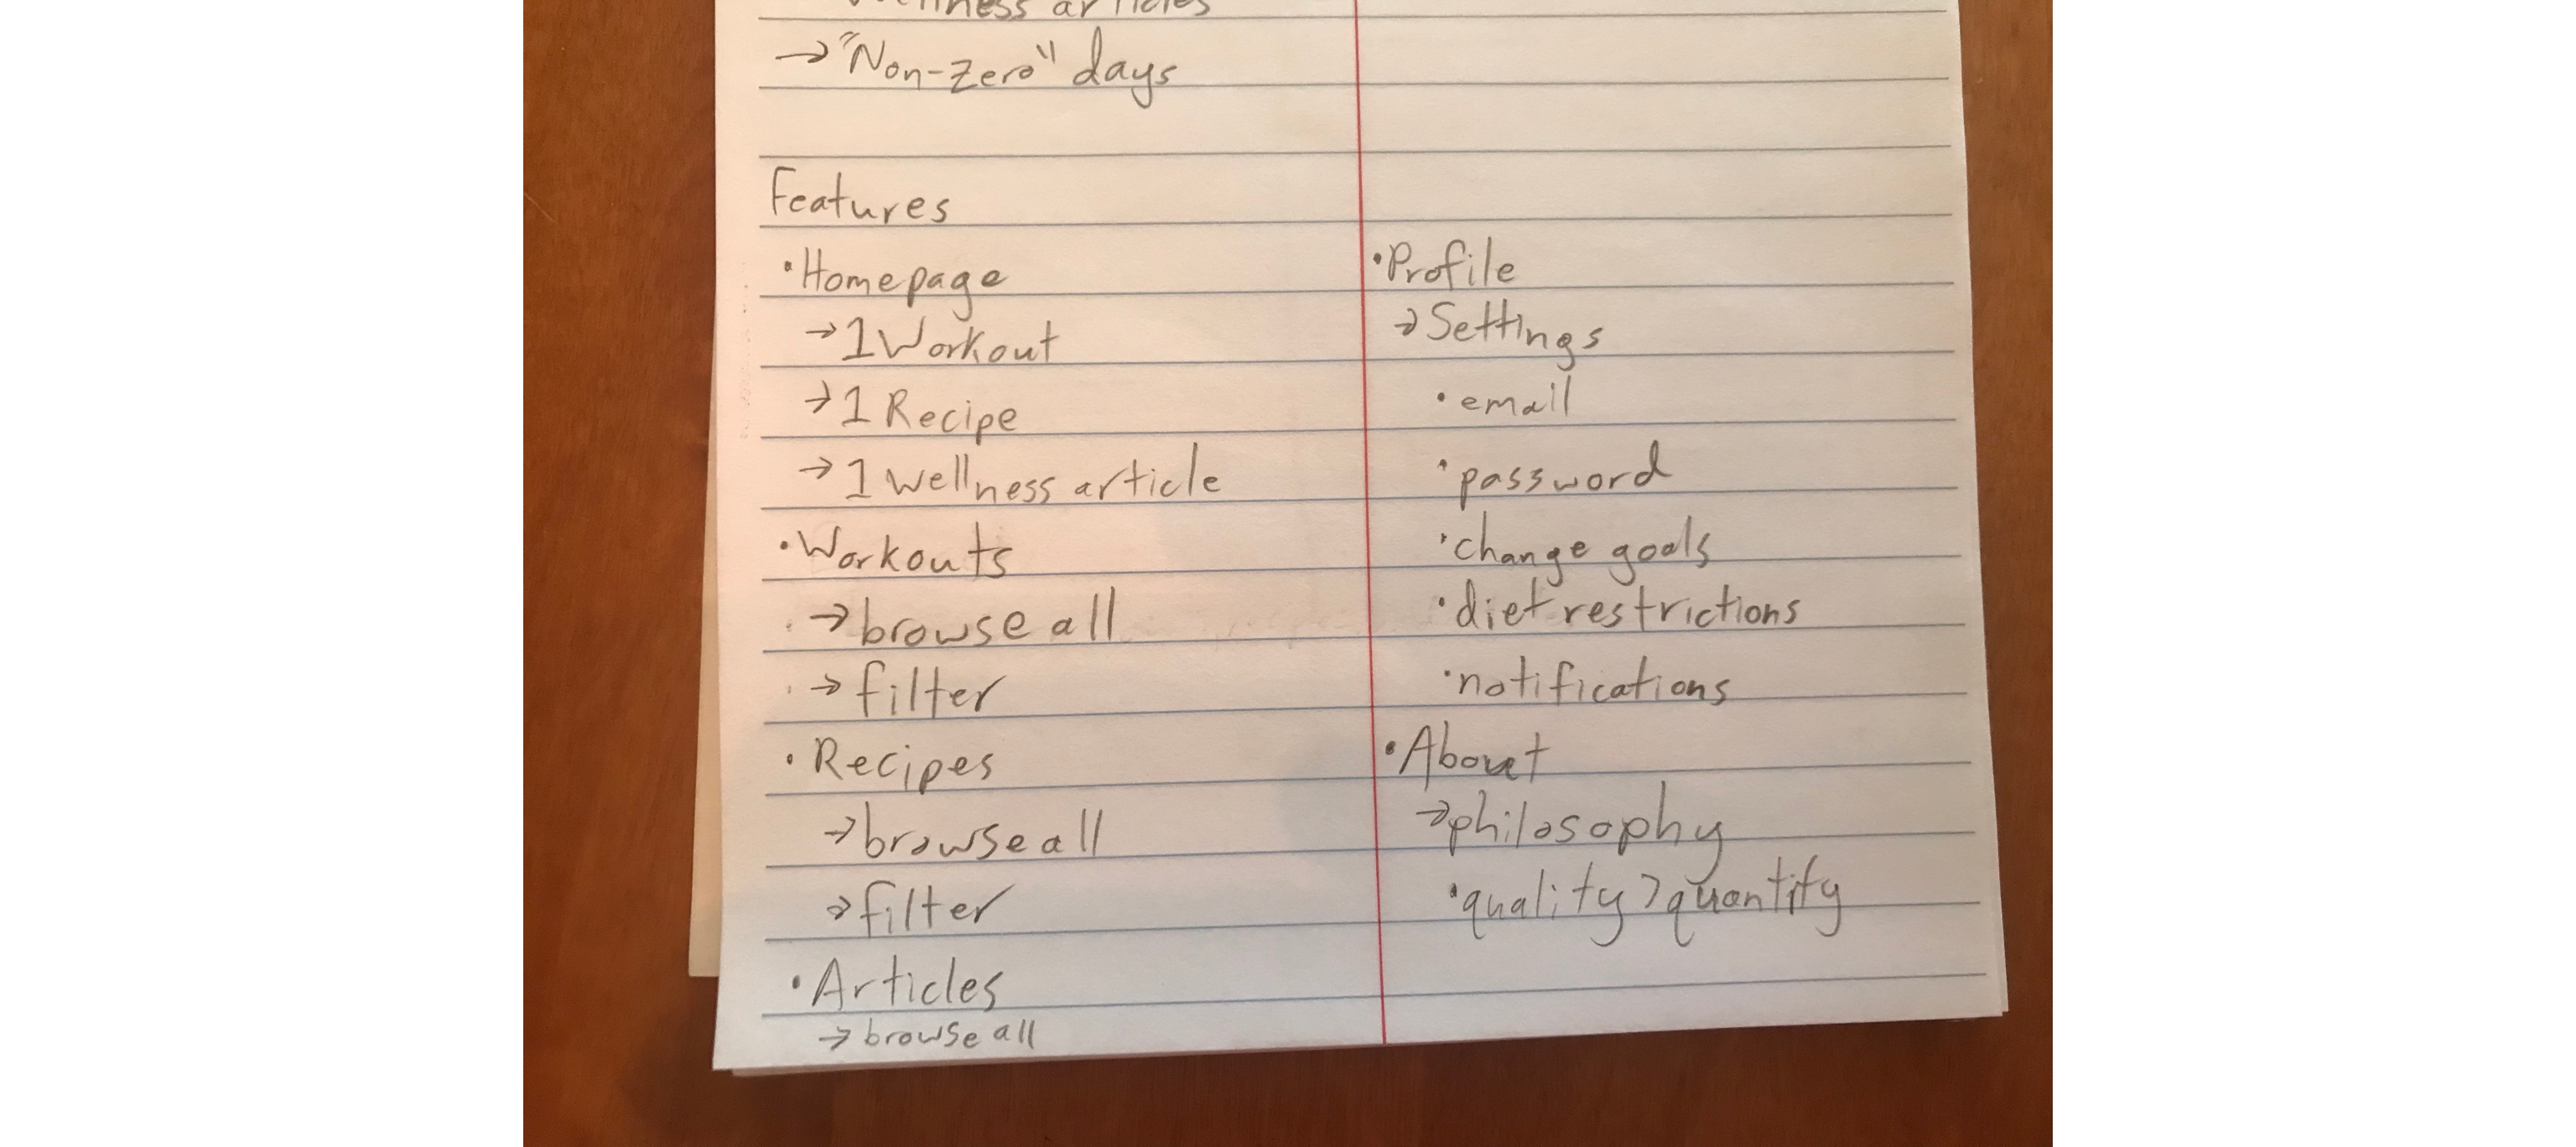 wellness articles
→ "Non-Zero" days
Features
• Homepage
→ 1 Workout
→ 1 Recipe
→ 1 wellness article
• Workouts
→ browse all
→ filter
• Recipes
→ browse all
→ filter
• Articles
→ browse all
• Profile
→ Settings
• email
• password
• change goals
• diet restrictions
• notifications
• About
→ philosophy
• quality > quantity